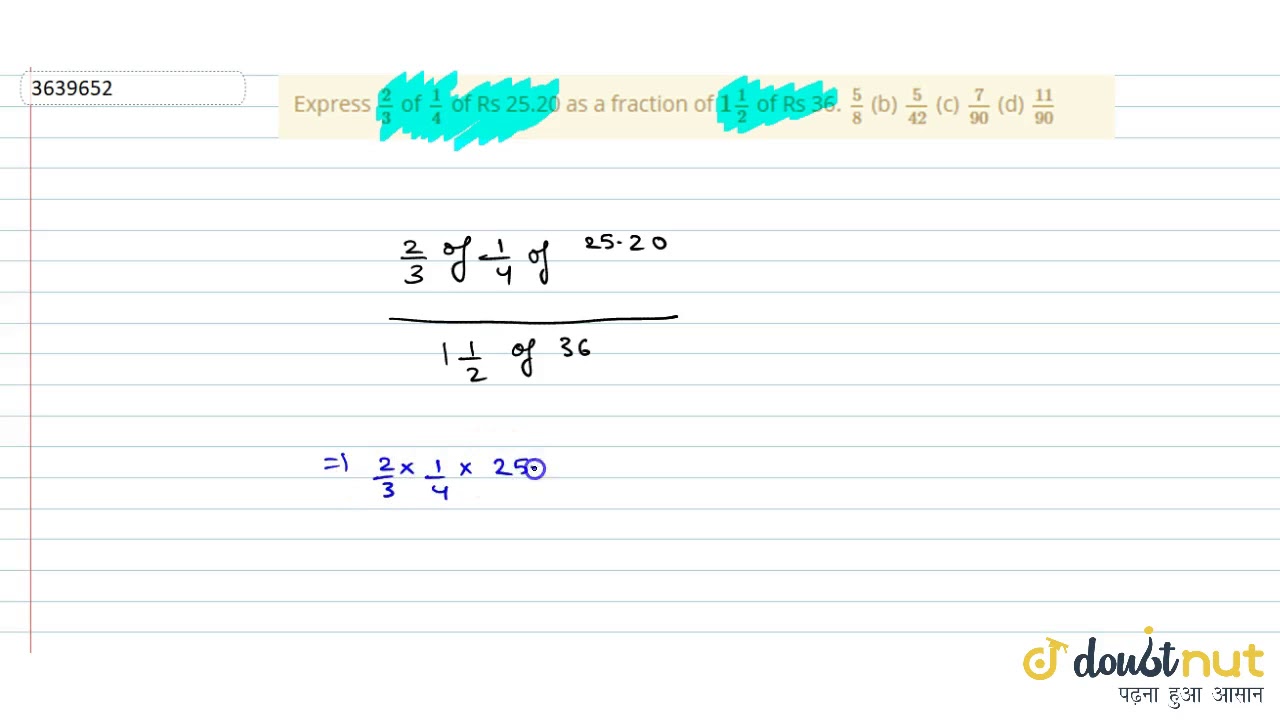 3639652
Express 2/3 of 1/4 of Rs 25.20 as a fraction of 1 1/2 of Rs 36. 5/8 (b) 5/42 (c) 7/90 (d) 11/90
2/3 of 1/4 of 25.20
1 1/2 of 36
=) 2/3 × 1/4 × 25.
doubtnut
पढ़ना हुआ आसान